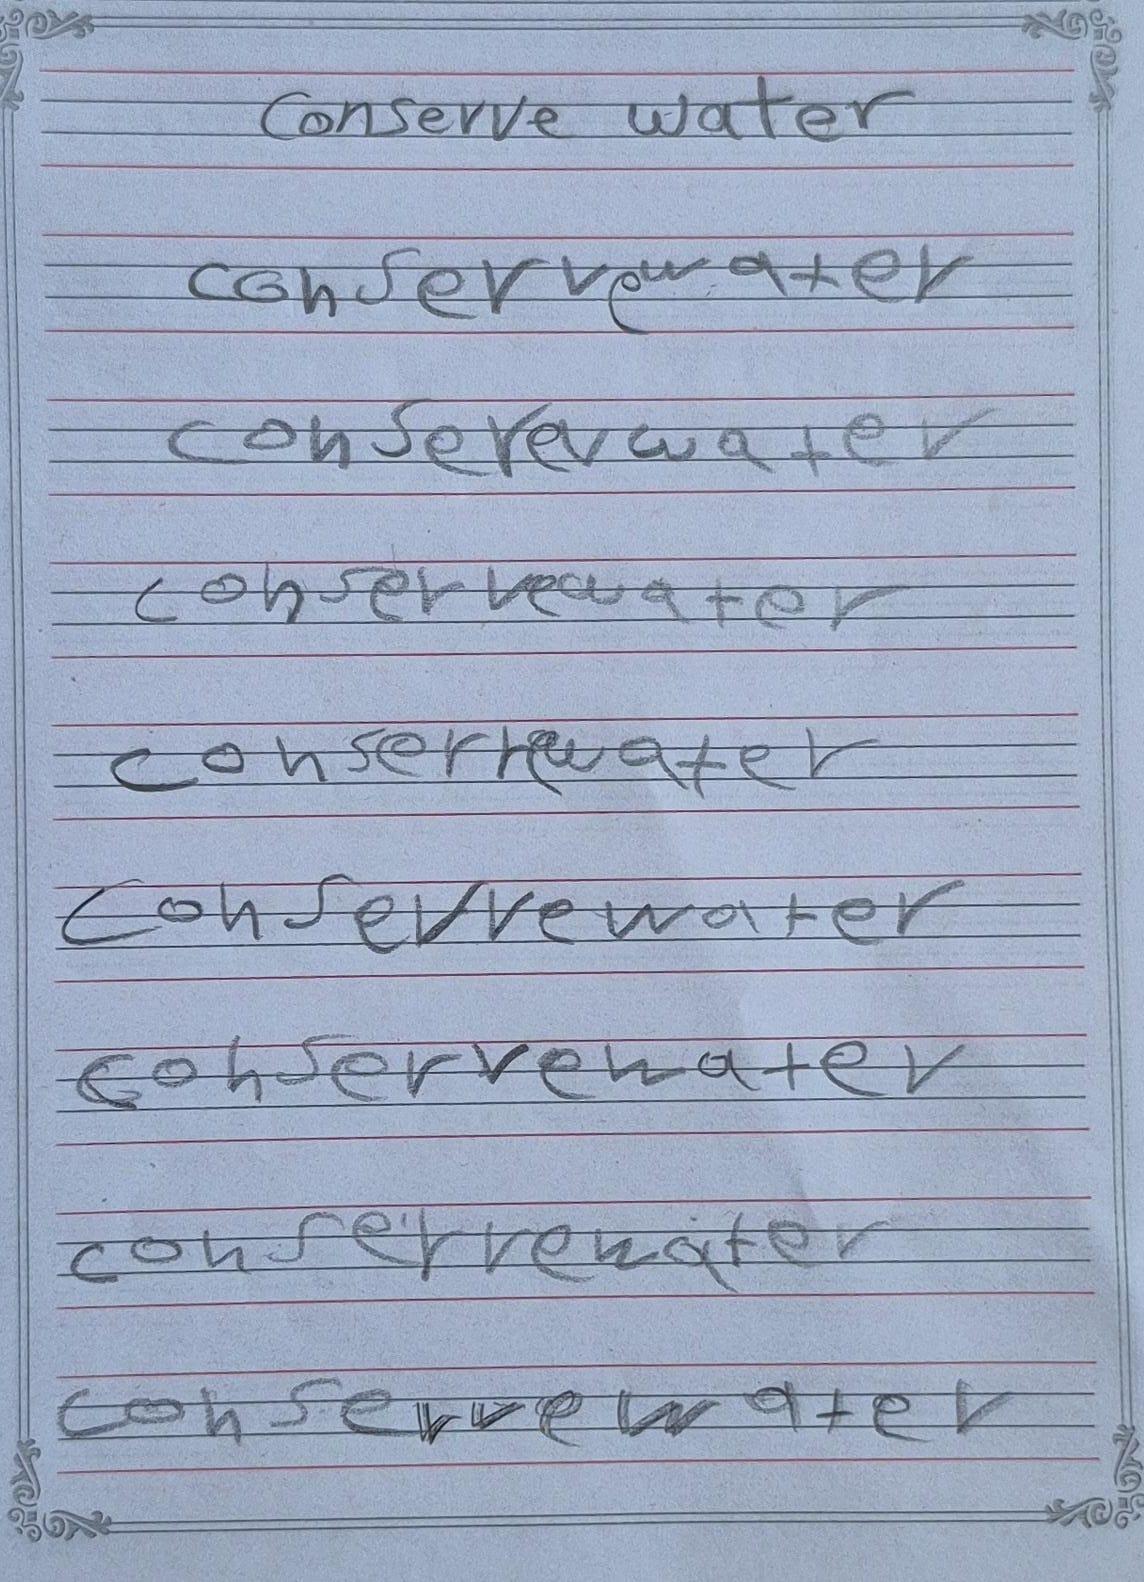 Conserve water
conservewater
conserevwater
conservewater
conservewater
Conservewater
conservewater
conservewater
conservewater